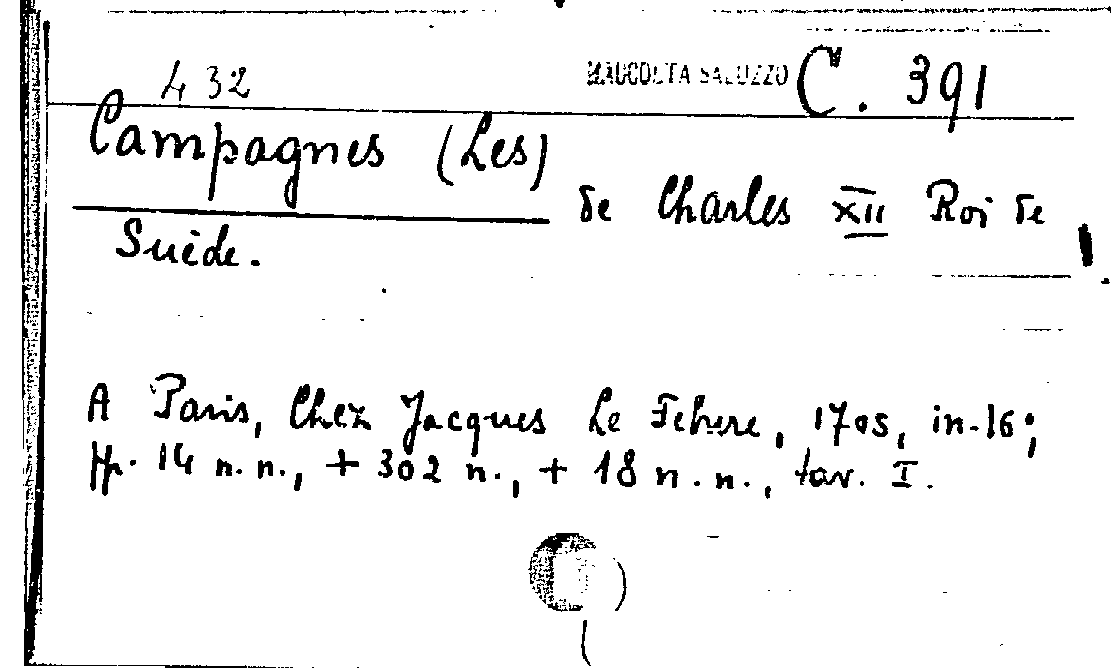 432 RACCOLTA SALUZZO C. 391
Campagnes (Les) de Charles XII Roi de
Suède.
A Paris, Chez Jacques Le Febvre, 1705, in-16°;
pp. 14 n.n., + 302 n., + 18 n.n., tav. I.